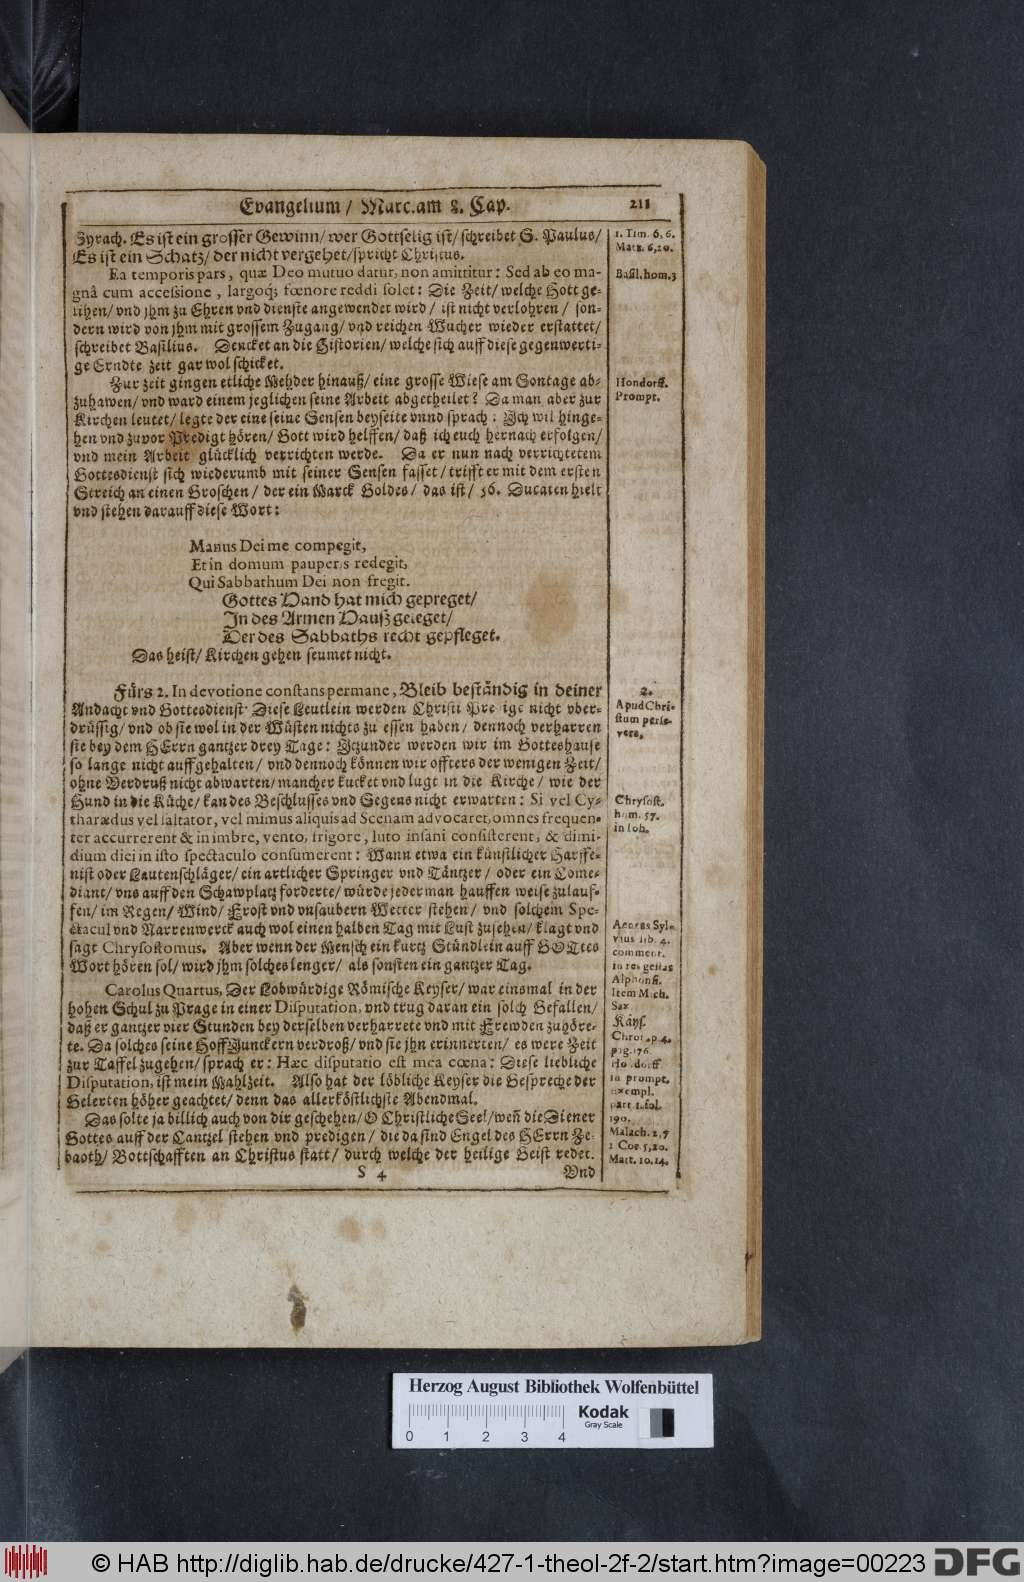 Evangelium / Marc. am 8. Cap. 211
Zyrach. Es ist ein grosser Gewinn / wer Gottselig ist / schreibet S. Paulus /
Es ist ein Schatz / der nicht vergehet / spricht Christus.
Ea temporis pars, quæ Deo mutuo datur, non amittitur: Sed ab eo ma-
gnâ cum accessione, largoq; fœnore reddi solet: Die Zeit / welche Gott ge-
lihen / vnd jhm zu Ehren vnd dienste angewendet wird / ist nicht verlohren / son-
dern wird von jhm mit grossem Zugang / vnd reichen Wucher wieder erstattet /
schreibet Basilius. Dencket an die Historien / welche sich auff diese gegenwerti-
ge Erndte zeit gar wol schicket.
Zur zeit gingen etliche Mehder hinauß / eine grosse Wiese am Sontage ab-
zuhawen / vnd ward einem jeglichen seine Arbeit abgetheilet? Da man aber zur
Kirchen leutet / legte der eine seine Sensen beyseite vnnd sprach: Ich wil hinge-
hen vnd zuvor Predigt hören / Gott wird helffen / daß ich euch hernach erfolgen /
vnd mein Arbeit glücklich verrichten werde. Da er nun nach verrichtetem
Gottesdienst sich wiederumb mit seiner Sensen fasset / trifft er mit dem ersten
Streich an einen Groschen / der ein Marck Goldes / das ist / 36. Ducaten hielt
vnd stehen darauff diese Wort:
Manus Dei me compegit,
Et in domum pauperis redegit,
Qui Sabbathum Dei non fregit.
Gottes Hand hat mich gepreget /
In des Armen Hauß geleget /
Der des Sabbaths recht gepfleget.
Das heist / Kirchen gehen seumet nicht.
Fürs 2. In devotione constans permane, Bleib beständig in deiner
Andacht vnd Gottesdienst. Diese Leutlein werden Christi Pre ige nicht vber-
drüssig / vnd ob sie wol in der Wüsten nichts zu essen haben / dennoch verharren
sie bey dem HErrn gantzer drey Tage: Itzunder werden wir im Gotteshause
so lange nicht auffgehalten / vnd dennoch können wir offters der wenigen Zeit /
ohne Verdruß nicht abwarten / mancher kucket vnd lugt in die Kirche / wie der
Hund in die Küche / kan des Beschlusses vnd Segens nicht erwarten: Si vel Cy-
tharædus vel saltator, vel mimus aliquis ad Scenam advocaret, omnes frequen-
ter accurrerent & in imbre, vento, frigore, luto insani consisterent, & dimi-
dium diei in isto spectaculo consumerent: Wann etwa ein künstlicher Harffe-
nist oder Lautenschläger / ein artlicher Springer vnd Täntzer / oder ein Come-
diant / vns auff den Schawplatz forderte / würde jederman hauffen weise zulauf-
fen / im Regen / Wind / Frost vnd vnsaubern Wetter stehen / vnd solchem Spe-
ctacul vnd Narrenwerck auch wol einen halben Tag mit Lust zusehen / klagt vnd
sagt Chrysostomus. Aber wenn der Mensch ein kurtz Stündlein auff GOTtes
Wort hören sol / wird jhm solches lenger / als sonsten ein gantzer Tag.
Carolus Quartus, Der Lobwürdige Römische Keyser / war einsmal in der
hohen Schul zu Prage in einer Disputation, vnd trug daran ein solch Gefallen /
daß er gantzer vier Stunden bey derselben verharrete vnd mit Frewden zuhöre-
te. Da solches seine Hoff Junckern verdroß / vnd sie jhn erinnerten / es were Zeit
zur Taffel zugehen / sprach er: Hæc disputatio est mea cœna: Diese liebliche
Disputation, ist mein Mahlzeit. Also hat der löbliche Keyser die Gespreche der
Gelerten höher geachtet / denn das allerköstlichste Abendmal.
Das solte ja billich auch von dir geschehen / O Christliche Seel / weñ die Diener
Gottes auff der Cantzel stehen vnd predigen / die da sind Engel des HErrn Ze-
baoth / Bottschafften an Christus statt / durch welche der heilige Geist redet.
S 4 Vnd
1. Tim. 6, 6.
Matt. 6, 20.
Basil. hom. 3
Hondorff.
Prompt.
2.
Apud Chri-
stum perse-
vere.
Chrysost.
hom. 57.
in Ioh.
Aeneas Syl-
vius lib. 4.
comment.
in res gestas
Alphonsi.
Item Mich.
Sax.
Käys.
Chron. p. 4.
pag. 176.
Hondorff.
in prompt.
exempl.
part. 1. fol.
190.
Malach. 2, 7
2 Cor. 5, 20.
Matt. 10. 14.
Herzog August Bibliothek Wolfenbüttel
Kodak
Gray Scale
0 1 2 3 4
© HAB http://diglib.hab.de/drucke/427-1-theol-2f-2/start.htm?image=00223 DFG